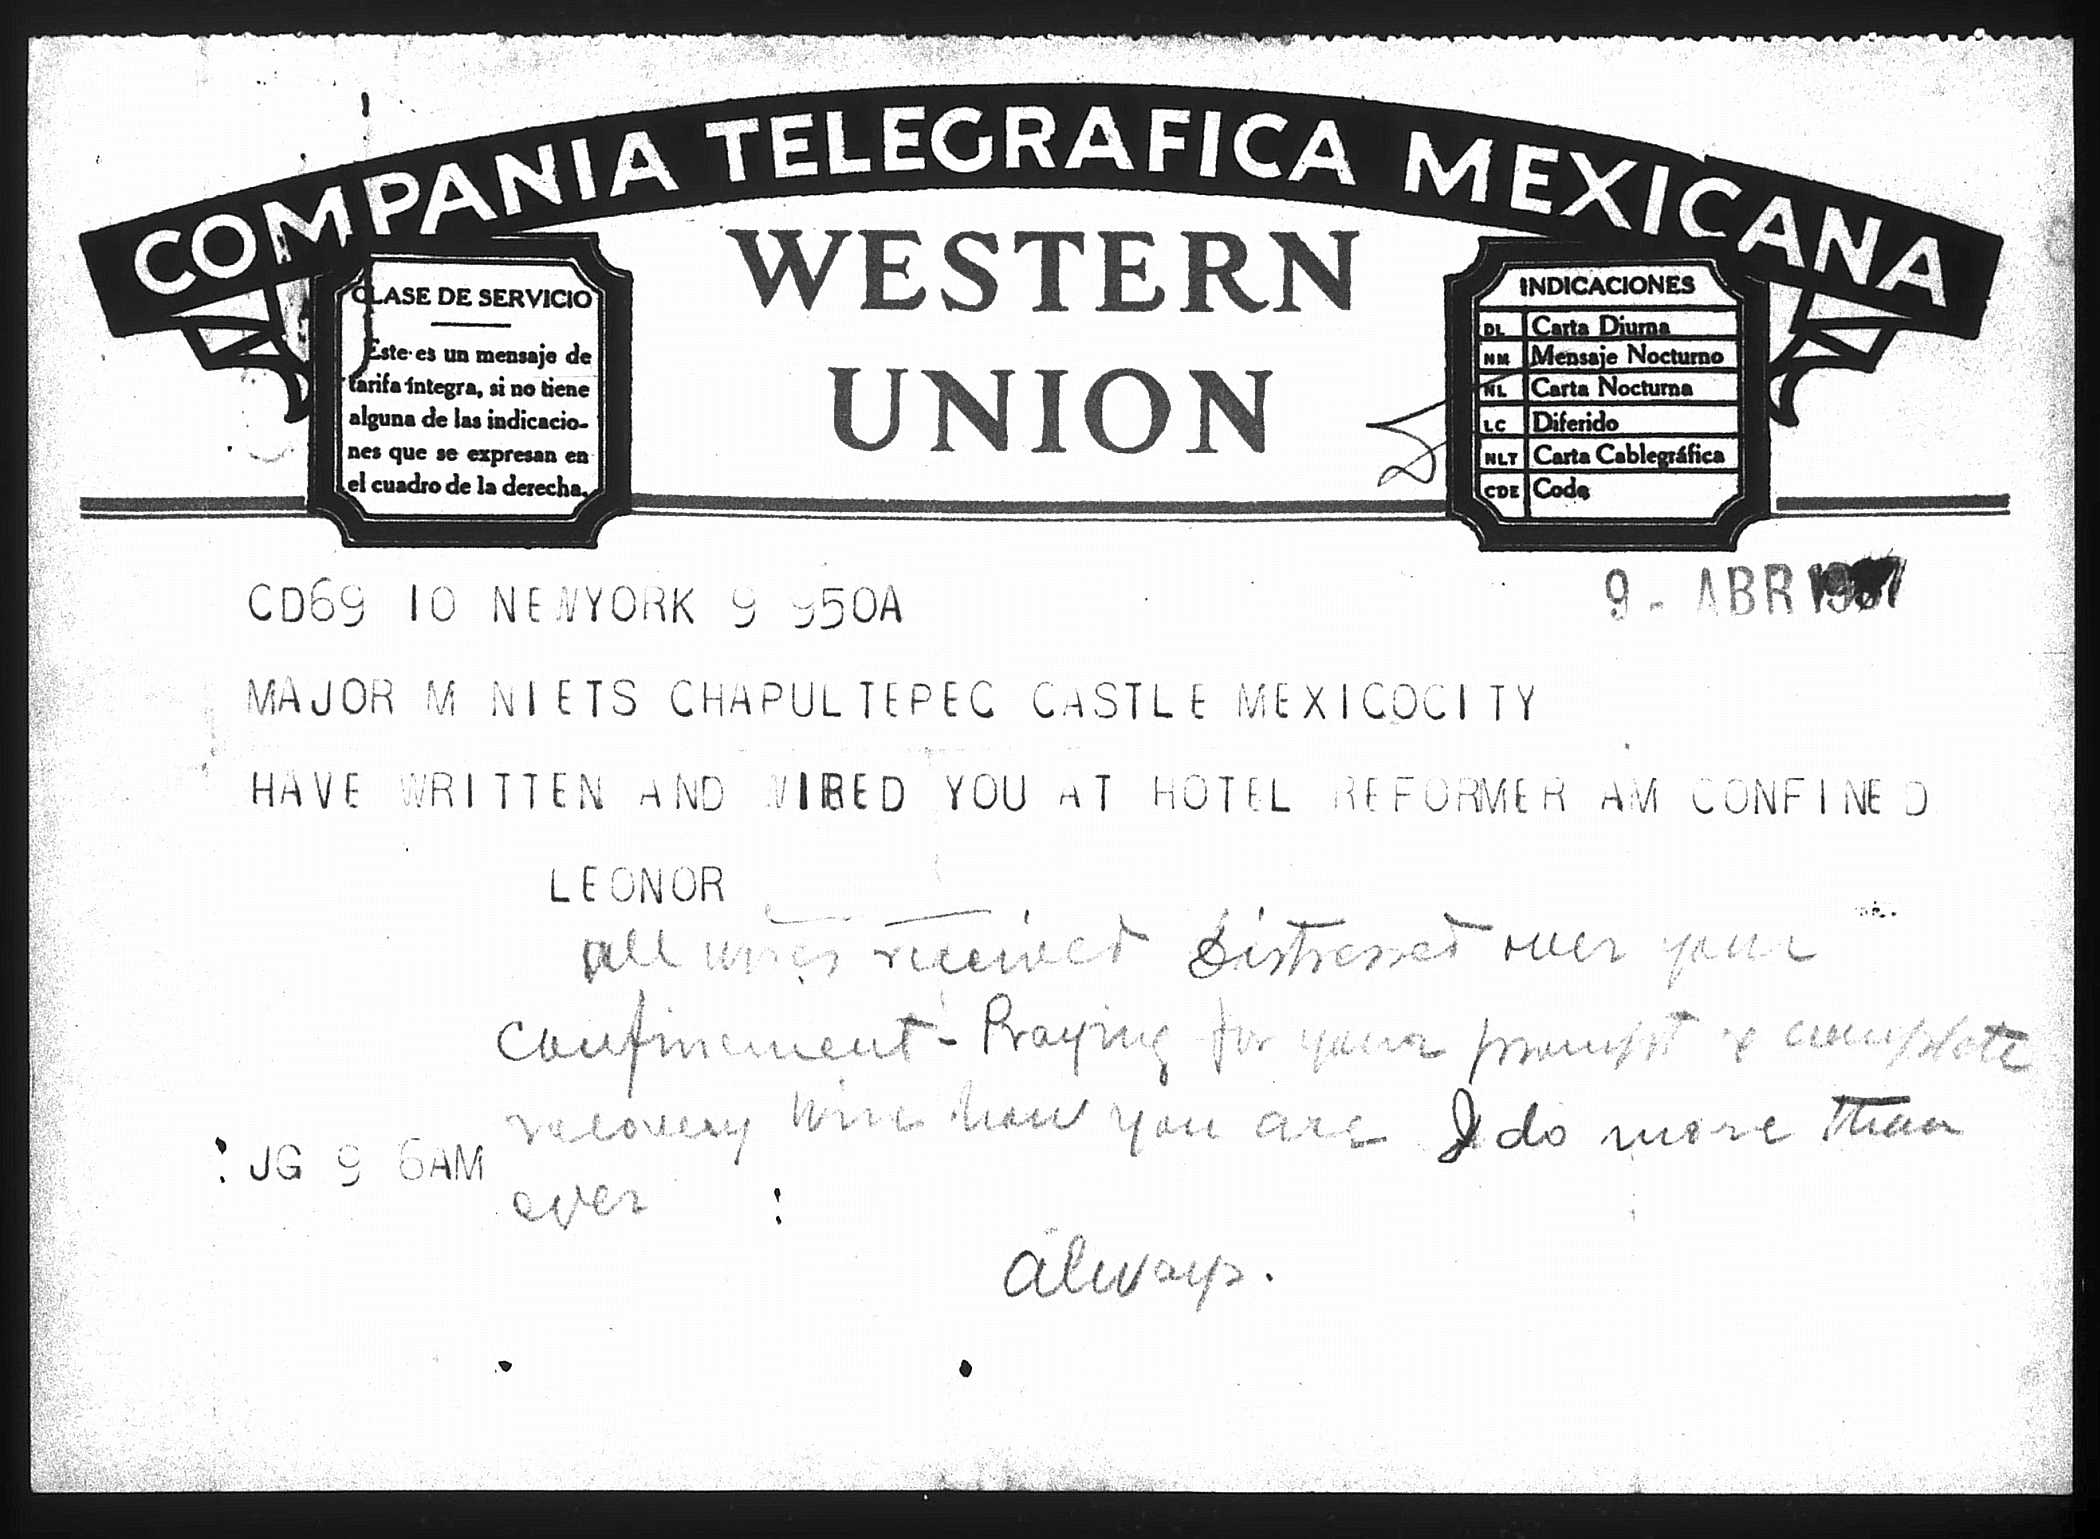 COMPANIA TELEGRAFICA MEXICANA
WESTERN
UNION
CLASE DE SERVICIO
Este es un mensaje de
tarifa íntegra, si no tiene
alguna de las indicacio-
nes que se expresan en
el cuadro de la derecha.
INDICACIONES
DL Carta Diurna
NM Mensaje Nocturno
NL Carta Nocturna
LC Diferido
NLT Carta Cablegráfica
CDE Code
CD69 10 NEWYORK 9 950A
9 - ABR 1937
MAJOR M NIETS CHAPULTEPEC CASTLE MEXICOCITY
HAVE WRITTEN AND WIRED YOU AT HOTEL REFORMER AM CONFINED
LEONOR
All wires received Distressed over your
confinement - Praying for your prompt & complete
recovery Wire how you are I do more than
ever
JG 9 6AM
always.